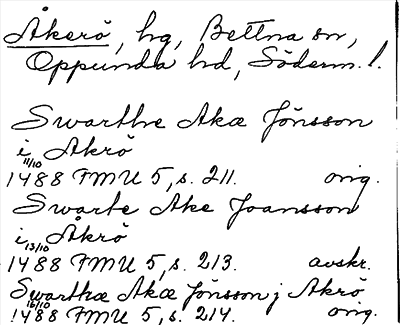 Åkerö, hg, Bettna sn,
Oppunda hd, Söderm. l.
Swarthe Akæ Jönsson
i Akrö
11/10
1488 FMU 5, s. 211. orig.
Swarte Ake Joansson
i Akrö
13/10
1488 FMU 5, s. 213. avskr.
Swarthæ Akæ Jönsson j Akrö
16/10
1488 FMU 5, s. 214. orig.